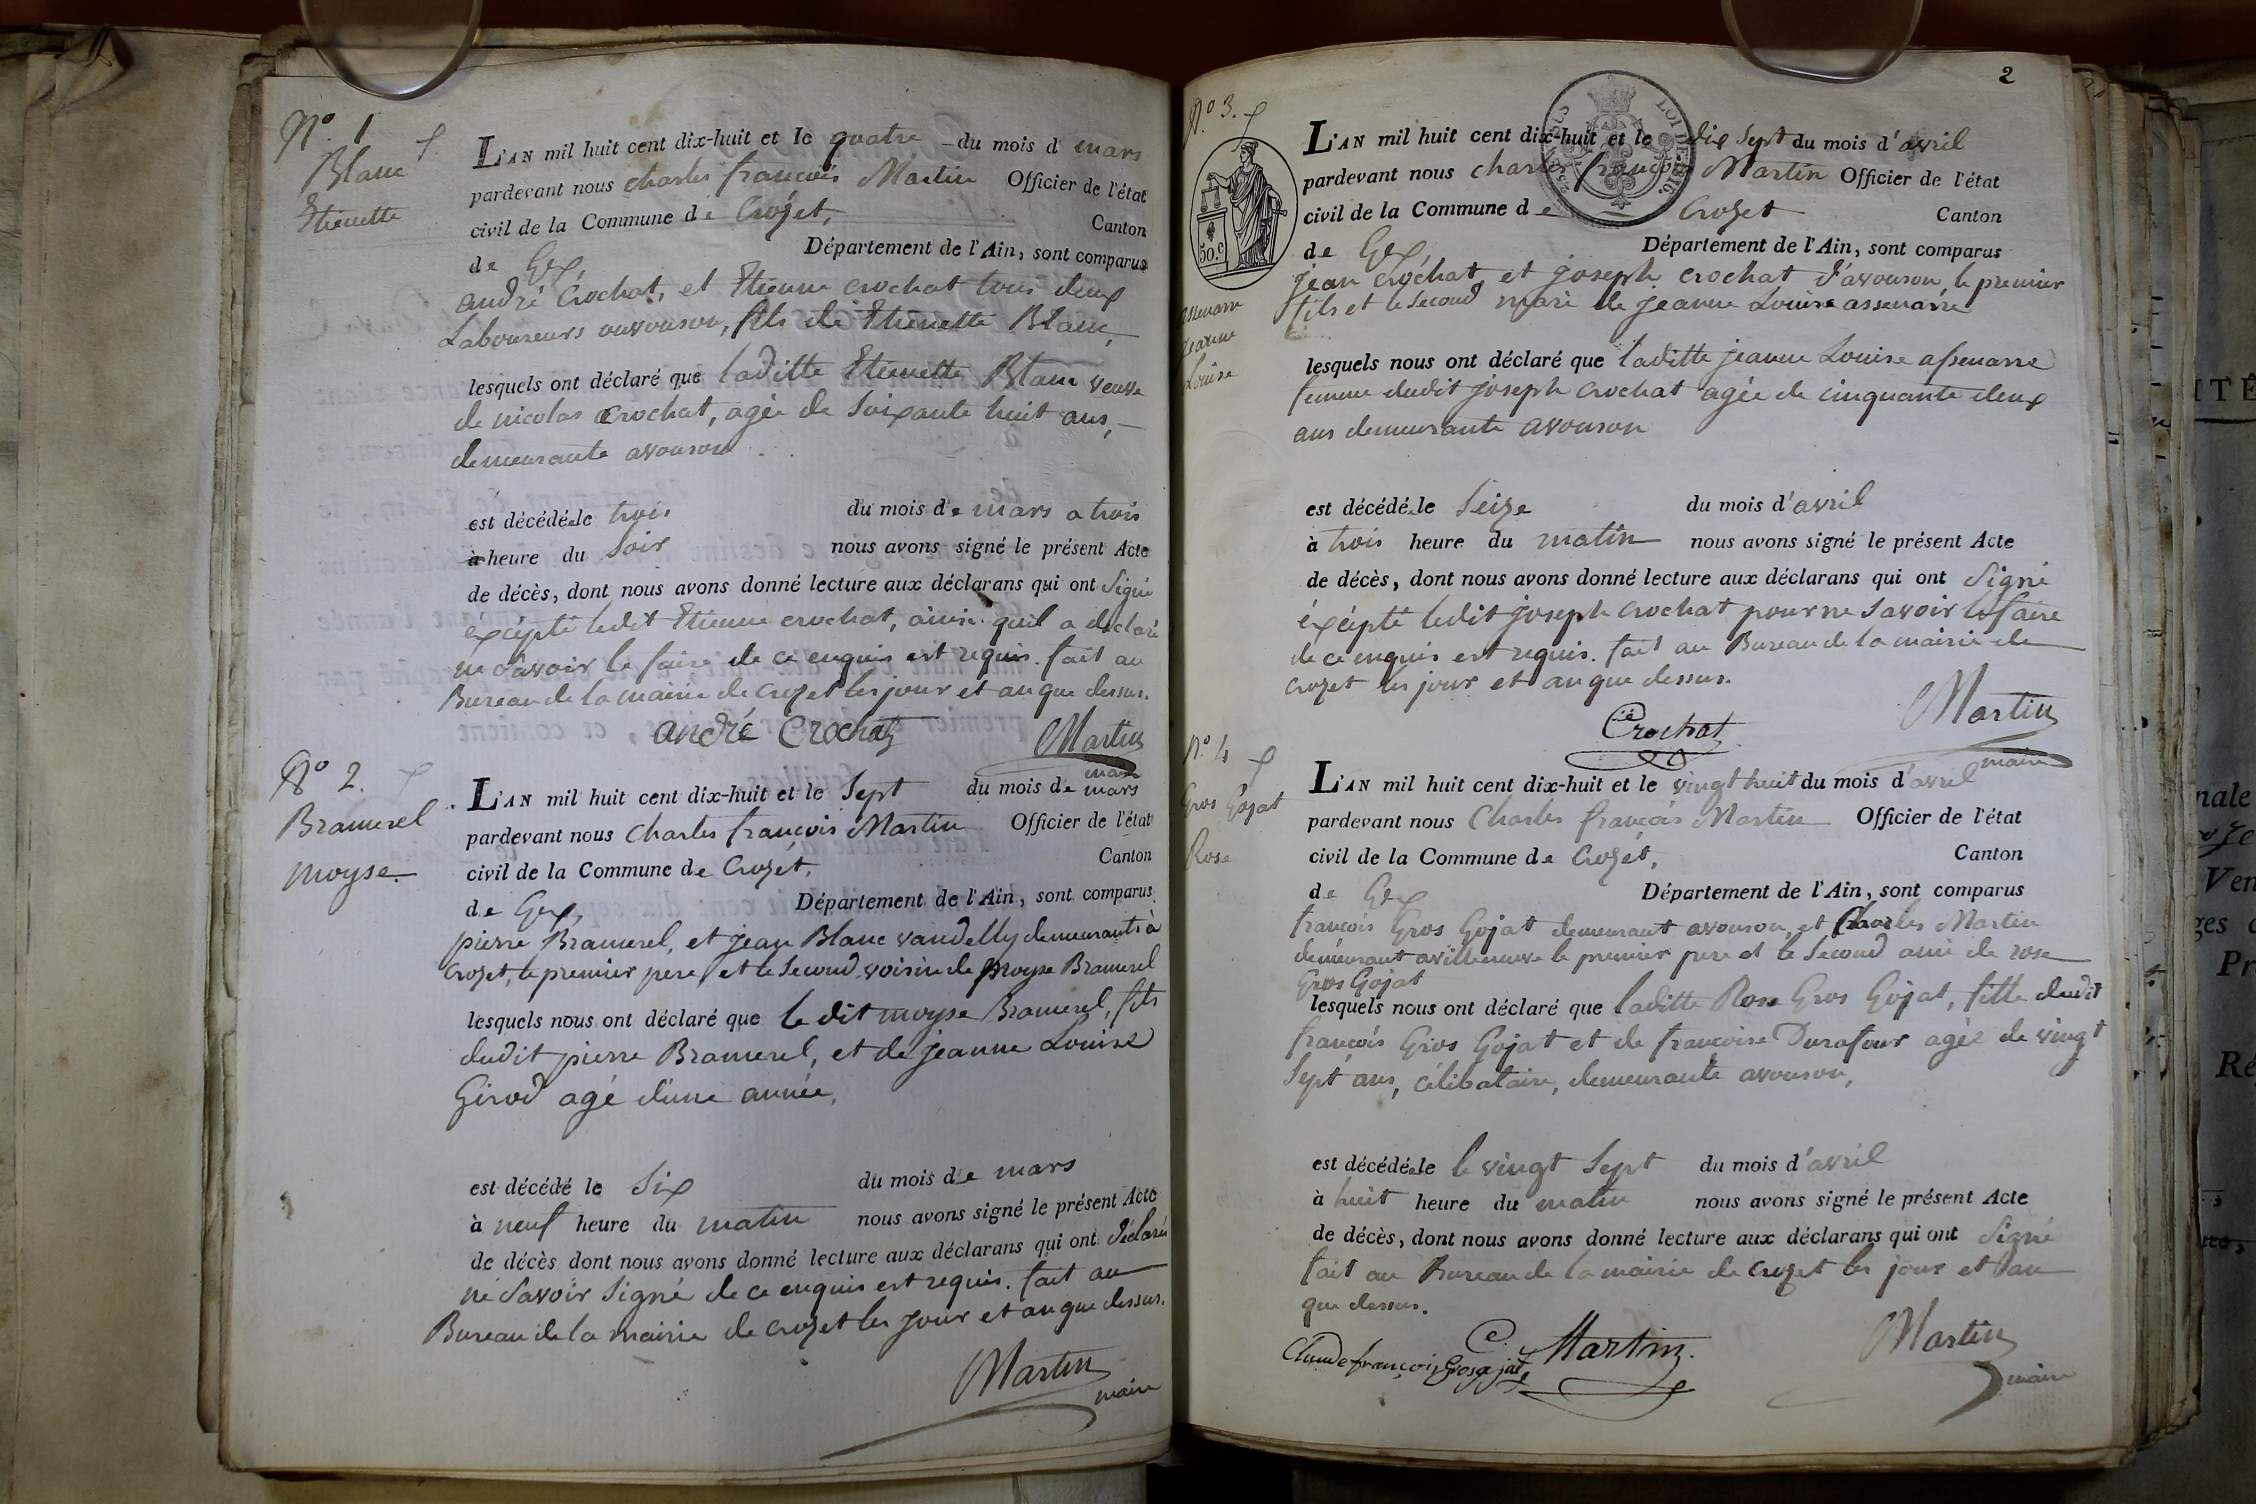 N.º 1
Blanc
Etienette
L'AN mil huit cent dix-huit et le quatre du mois d mars
pardevant nous charles françois Martin Officier de l'état
civil de la Commune de Crozet, Canton
de Gex, Département de l'Ain, sont comparus
andré Crochat, et Etienne crochat tous deux
Laboureurs avouson, fils de Etienette Blanc,
lesquels ont déclaré que laditte Etienette Blanc veuve
de nicolas crochat, agée de Soixante huit ans,
demeurante avouson
est décédée le trois du mois de mars a trois
à heure du Soir nous avons signé le présent Acte
de décès, dont nous avons donné lecture aux déclarans qui ont Signé
éxcépté ledit Etienne crochat, ainsi qu'il a declaré
ne Savoir le faire de ce enquis est requis. fait au
Bureau de la mairie de Crozet les jour et an que dessus.
andré Crochat Martin
maire
Nº 2.
Bramerel
moyse.
L'AN mil huit cent dix-huit et le Sept du mois de mars
pardevant nous Charles françois Martin Officier de l'état
civil de la Commune de Crozét, Canton
de Gex, Département de l'Ain, sont comparus
pierre Bramerel, et jean Blanc vandelly demeurants à
Crozet, le premier pere et le Second voisin de moyse Bramerel
lesquels nous ont déclaré que le dit moyse Bramerel, fils
dudit pierre Bramerel, et de jeanne Louise
Girod agé d'une année,
est décédé le Six du mois de mars
à neuf heure du matin nous avons signé le présent Acte
de décès dont nous avons donné lecture aux déclarans qui ont déclarés
ne Savoir Signé de ce enquis est requis. fait au
Bureau de la mairie de crozet les jour et an que dessus.
Martin
maire
2
N.º 3.
assenare
jeanne
Louise
50.c
LOI DE 1816.
L'AN mil huit cent dix-huit et le dix Sept du mois d'avril
pardevant nous charles françois Martin Officier de l'état
civil de la Commune de Crozet Canton
de Gex Département de l'Ain, sont comparus
jean crochat, et joseph crochat d'avouson, le premier
fils et le Second mari de jeanne Louise assenare
lesquels nous ont déclaré que laditte jeanne Louise assenare
femme dudit joseph crochat agée de cinquante deux
ans demeurante avouson
est décédée le Seize du mois d'avril
à trois heure du matin nous avons signé le présent Acte
de décès, dont nous avons donné lecture aux déclarans qui ont Signé
éxcépté ledit joseph crochat pour ne Savoir le faire
de ce enquis est requis. fait au Bureau de la mairie de
crozet les jour et an que dessus.
Crochat Martin
maire
N.º 4
Gros Gojat
Rose
L'AN mil huit cent dix-huit et le vingt huit du mois d'avril
pardevant nous Charles françois Martin Officier de l'état
civil de la Commune de Crozét, Canton
de Gex Département de l'Ain, sont comparus
françois Gros Gojat demeurant avouson, et Charles Martin
demeurant avilleneuve le premier pere et le Second ami de rose
Gros Gojat
lesquels nous ont déclaré que laditte Rose Gros Gojat, fille dudit
françois Gros Gojat et de francoise Durafour agée de vingt
Sept ans, célibataire, demeurante avouson,
est décédée le le vingt Sept du mois d'avril
à huit heure du matin nous avons signé le présent Acte
de décès, dont nous avons donné lecture aux déclarans qui ont Signé
fait au Bureau de la mairie de crozet les jour et an
que dessus.
Claude françois Grosgojat C Martin. Martin
maire